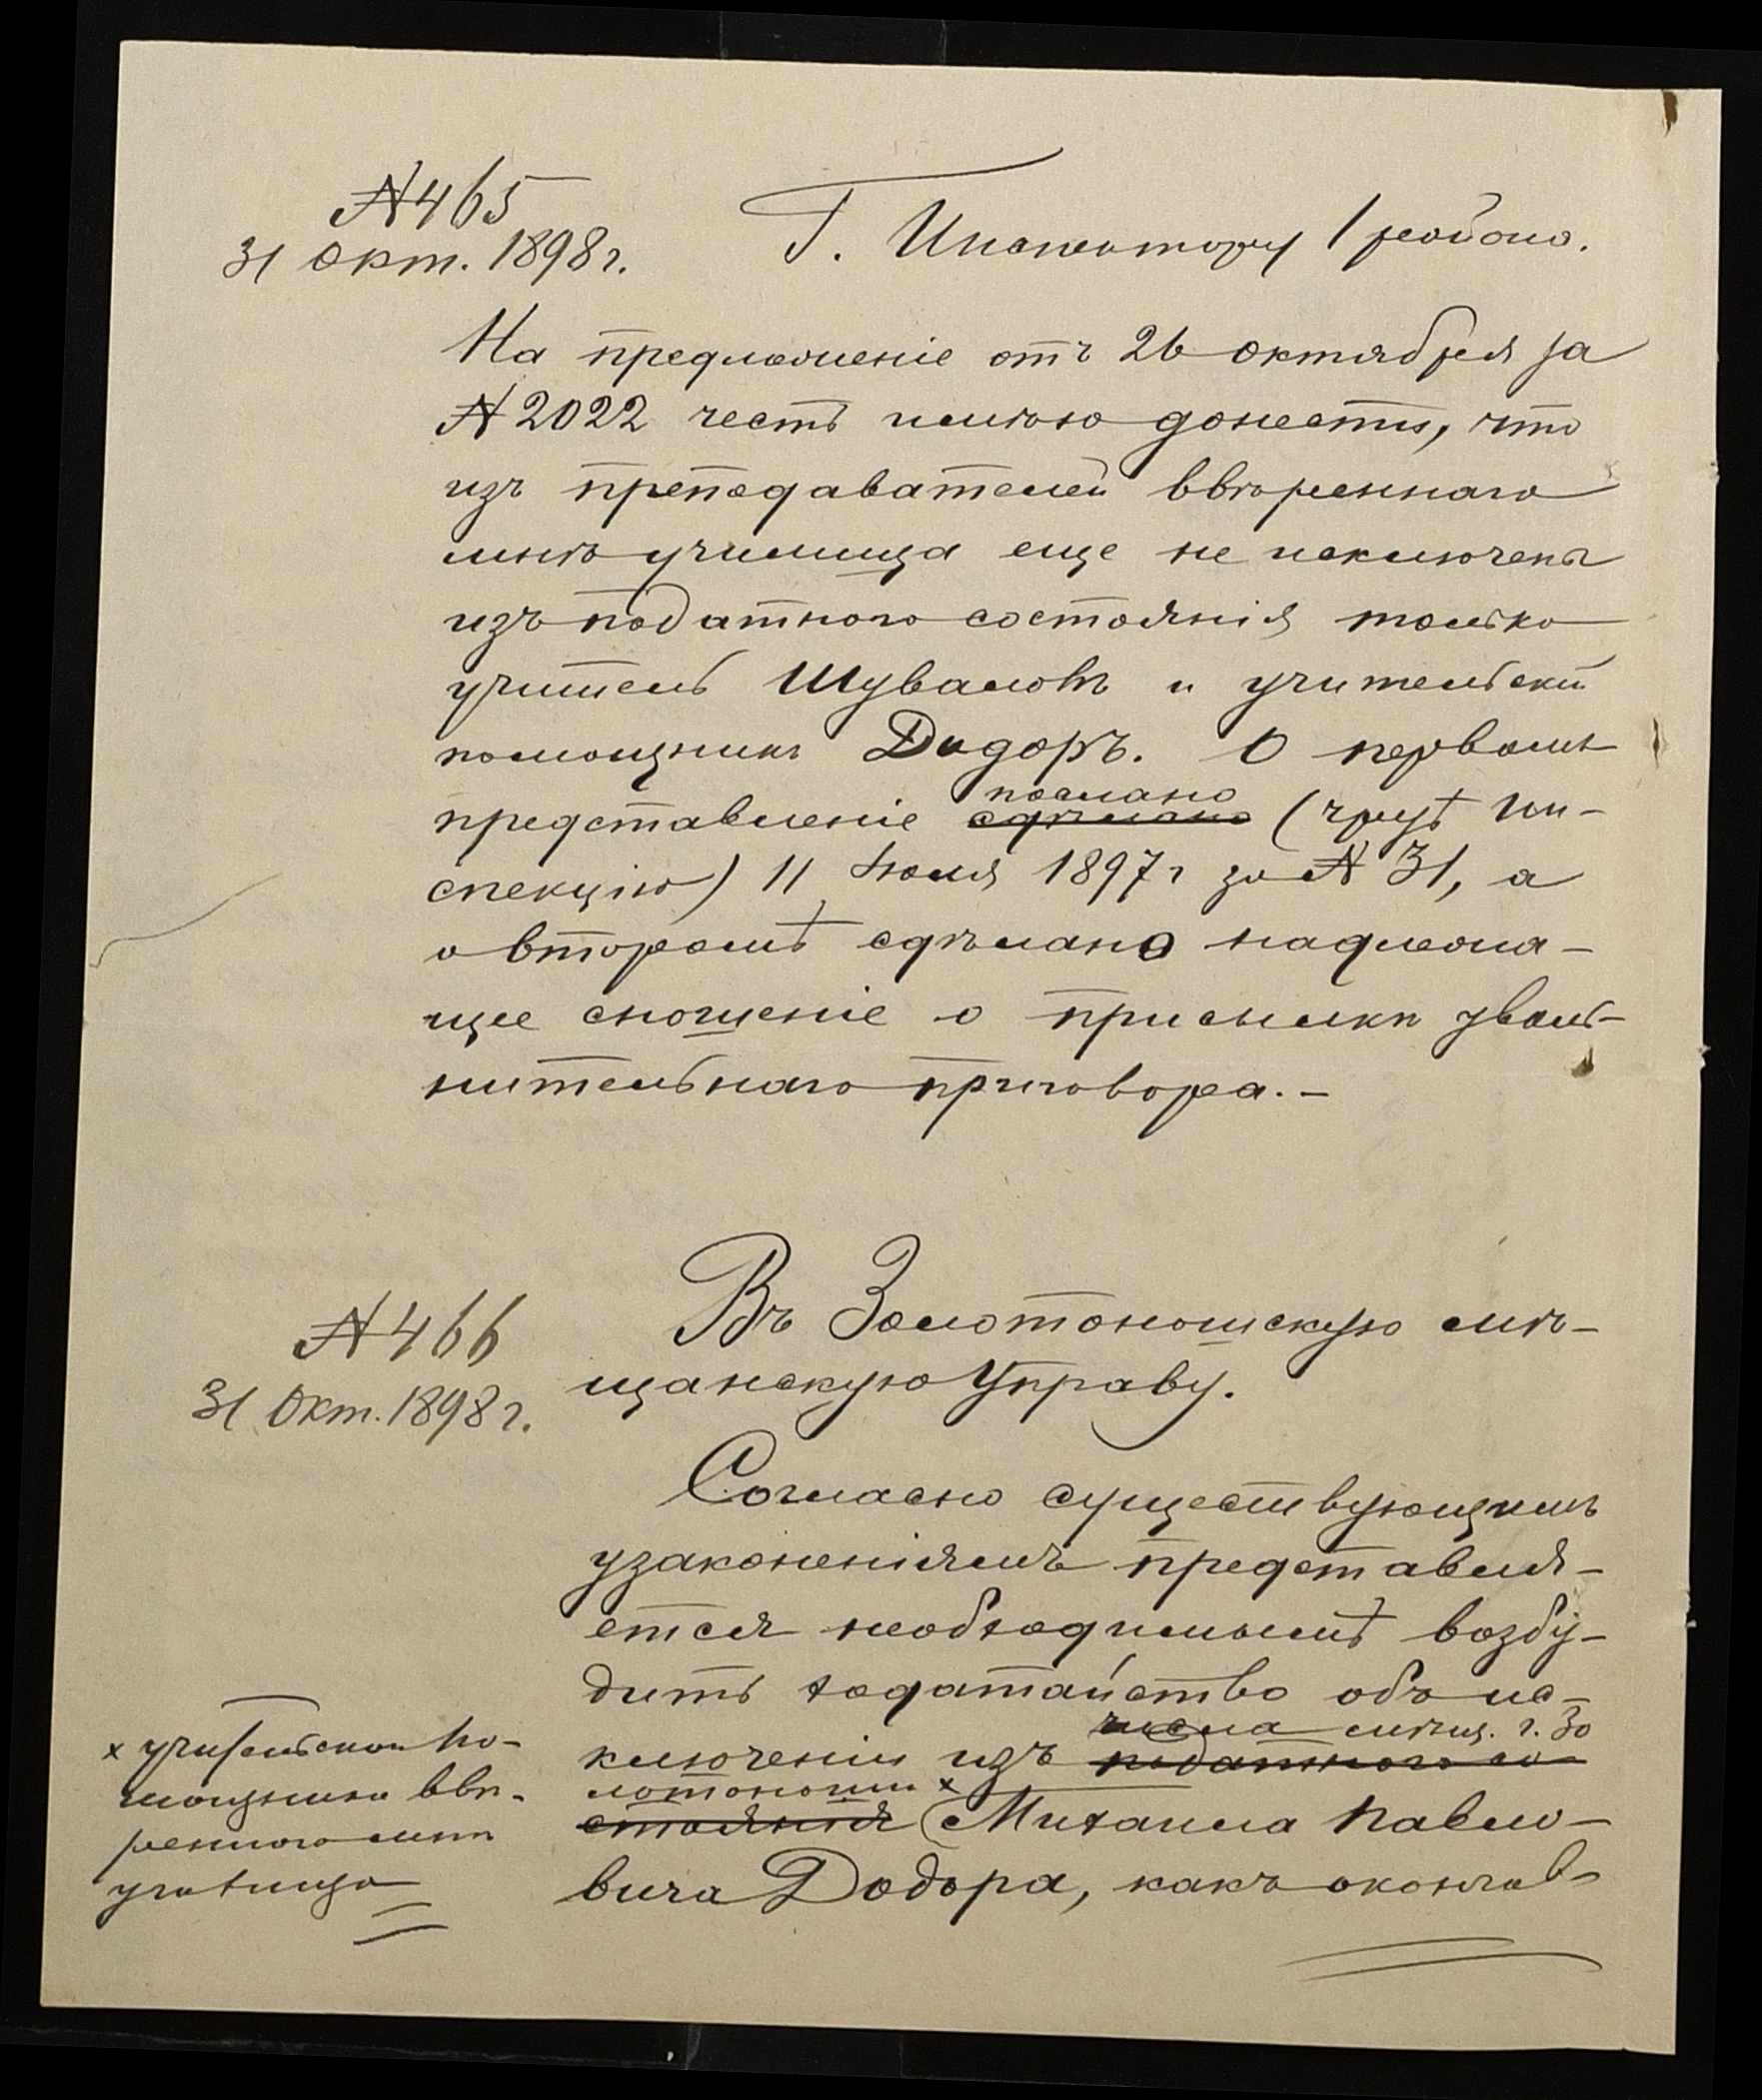 № 465
31 Окт. 1898 г.
Г. Инспектору 1 района.
На предложеніе отъ 26 октября за
№ 2022 честь имѣю донести, что
изъ преподавателей ввѣреннаго
мнѣ училища еще не исключены
изъ податного состоянія только
учитель Шуваловъ и учительскій
помощникъ Додоръ. О первомъ
послано
представленіе сдѣлано (чрезъ Ин-
спекцію) 11 Іюля 1897 г за № 31, а
о второмъ сдѣлано надлежа-
щее сношеніе о присылкѣ уволь-
нительнаго приговора.-
№ 466
31 Окт. 1898 г.
Въ Золотоношскую мѣ-
щанскую Управу.
Согласно существующимъ
узаконеніямъ представля-
ется необходимымъ возбу-
дить ходатайство объ ис-
числа мѣщ. г. Зо
ключеніи изъ податного со-
лотоноши х
стоянія Михаила Павло-
вича Додора, какъ окончав-
х учительскаго по-
мощника ввѣ-
реннаго мнѣ
училища